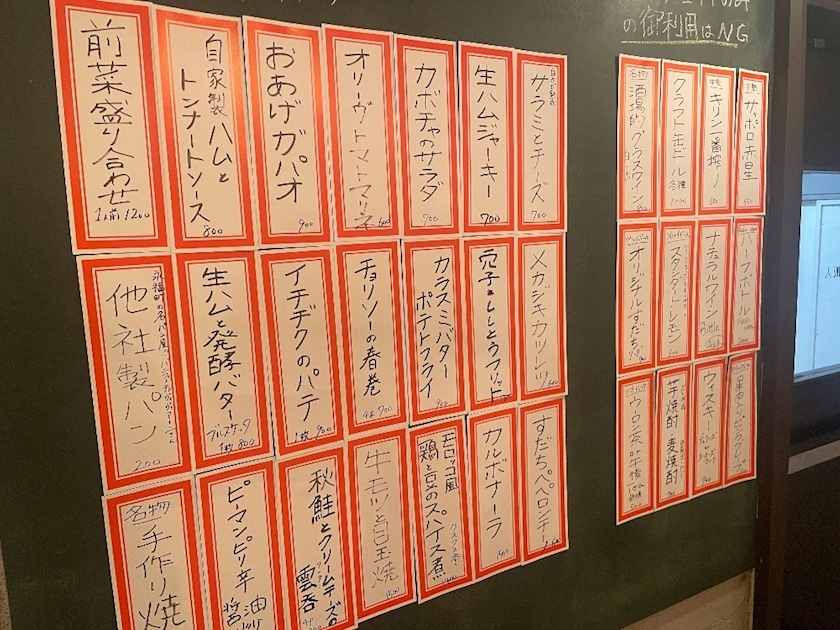 の御利用はNG
前菜盛り合わせ
1人前 1200
自家製ハムと
トンナートソース
800
おあげガパオ
900
オリーヴトマトマリネ
600
カボチャのサラダ
700
生ハムジャーキー
700
サラミとチーズ
700
他社製パン
200
生ハムと発酵バター
ブルスケッタ
1枚 800
イチヂクのパテ
1枚 900
チョリソーの春巻
4本 700
カラスミバター
ポテトフライ
900
穴子としとうフリット
メカジキカツレツ
名物
手作り焼
ピーマンピリ辛
醤油
秋鮭とクリームチーズの
雲呑
牛モツと白玉焼
モロッコ風
鶏と豆のスパイス煮
クスクス添え
カルボナーラ
すだちペペロンチーノ
名物
酒場的グラスワイン
クラフト缶ビール
各種
キリン一番搾り
サッポロ赤星
オリジナルすだち
スタンダードレモン
ナチュラルワイン
Bottle
ハーフボトル
ウーロン茶or午後Tea
芋焼酎 麦焼酎
ウィスキー